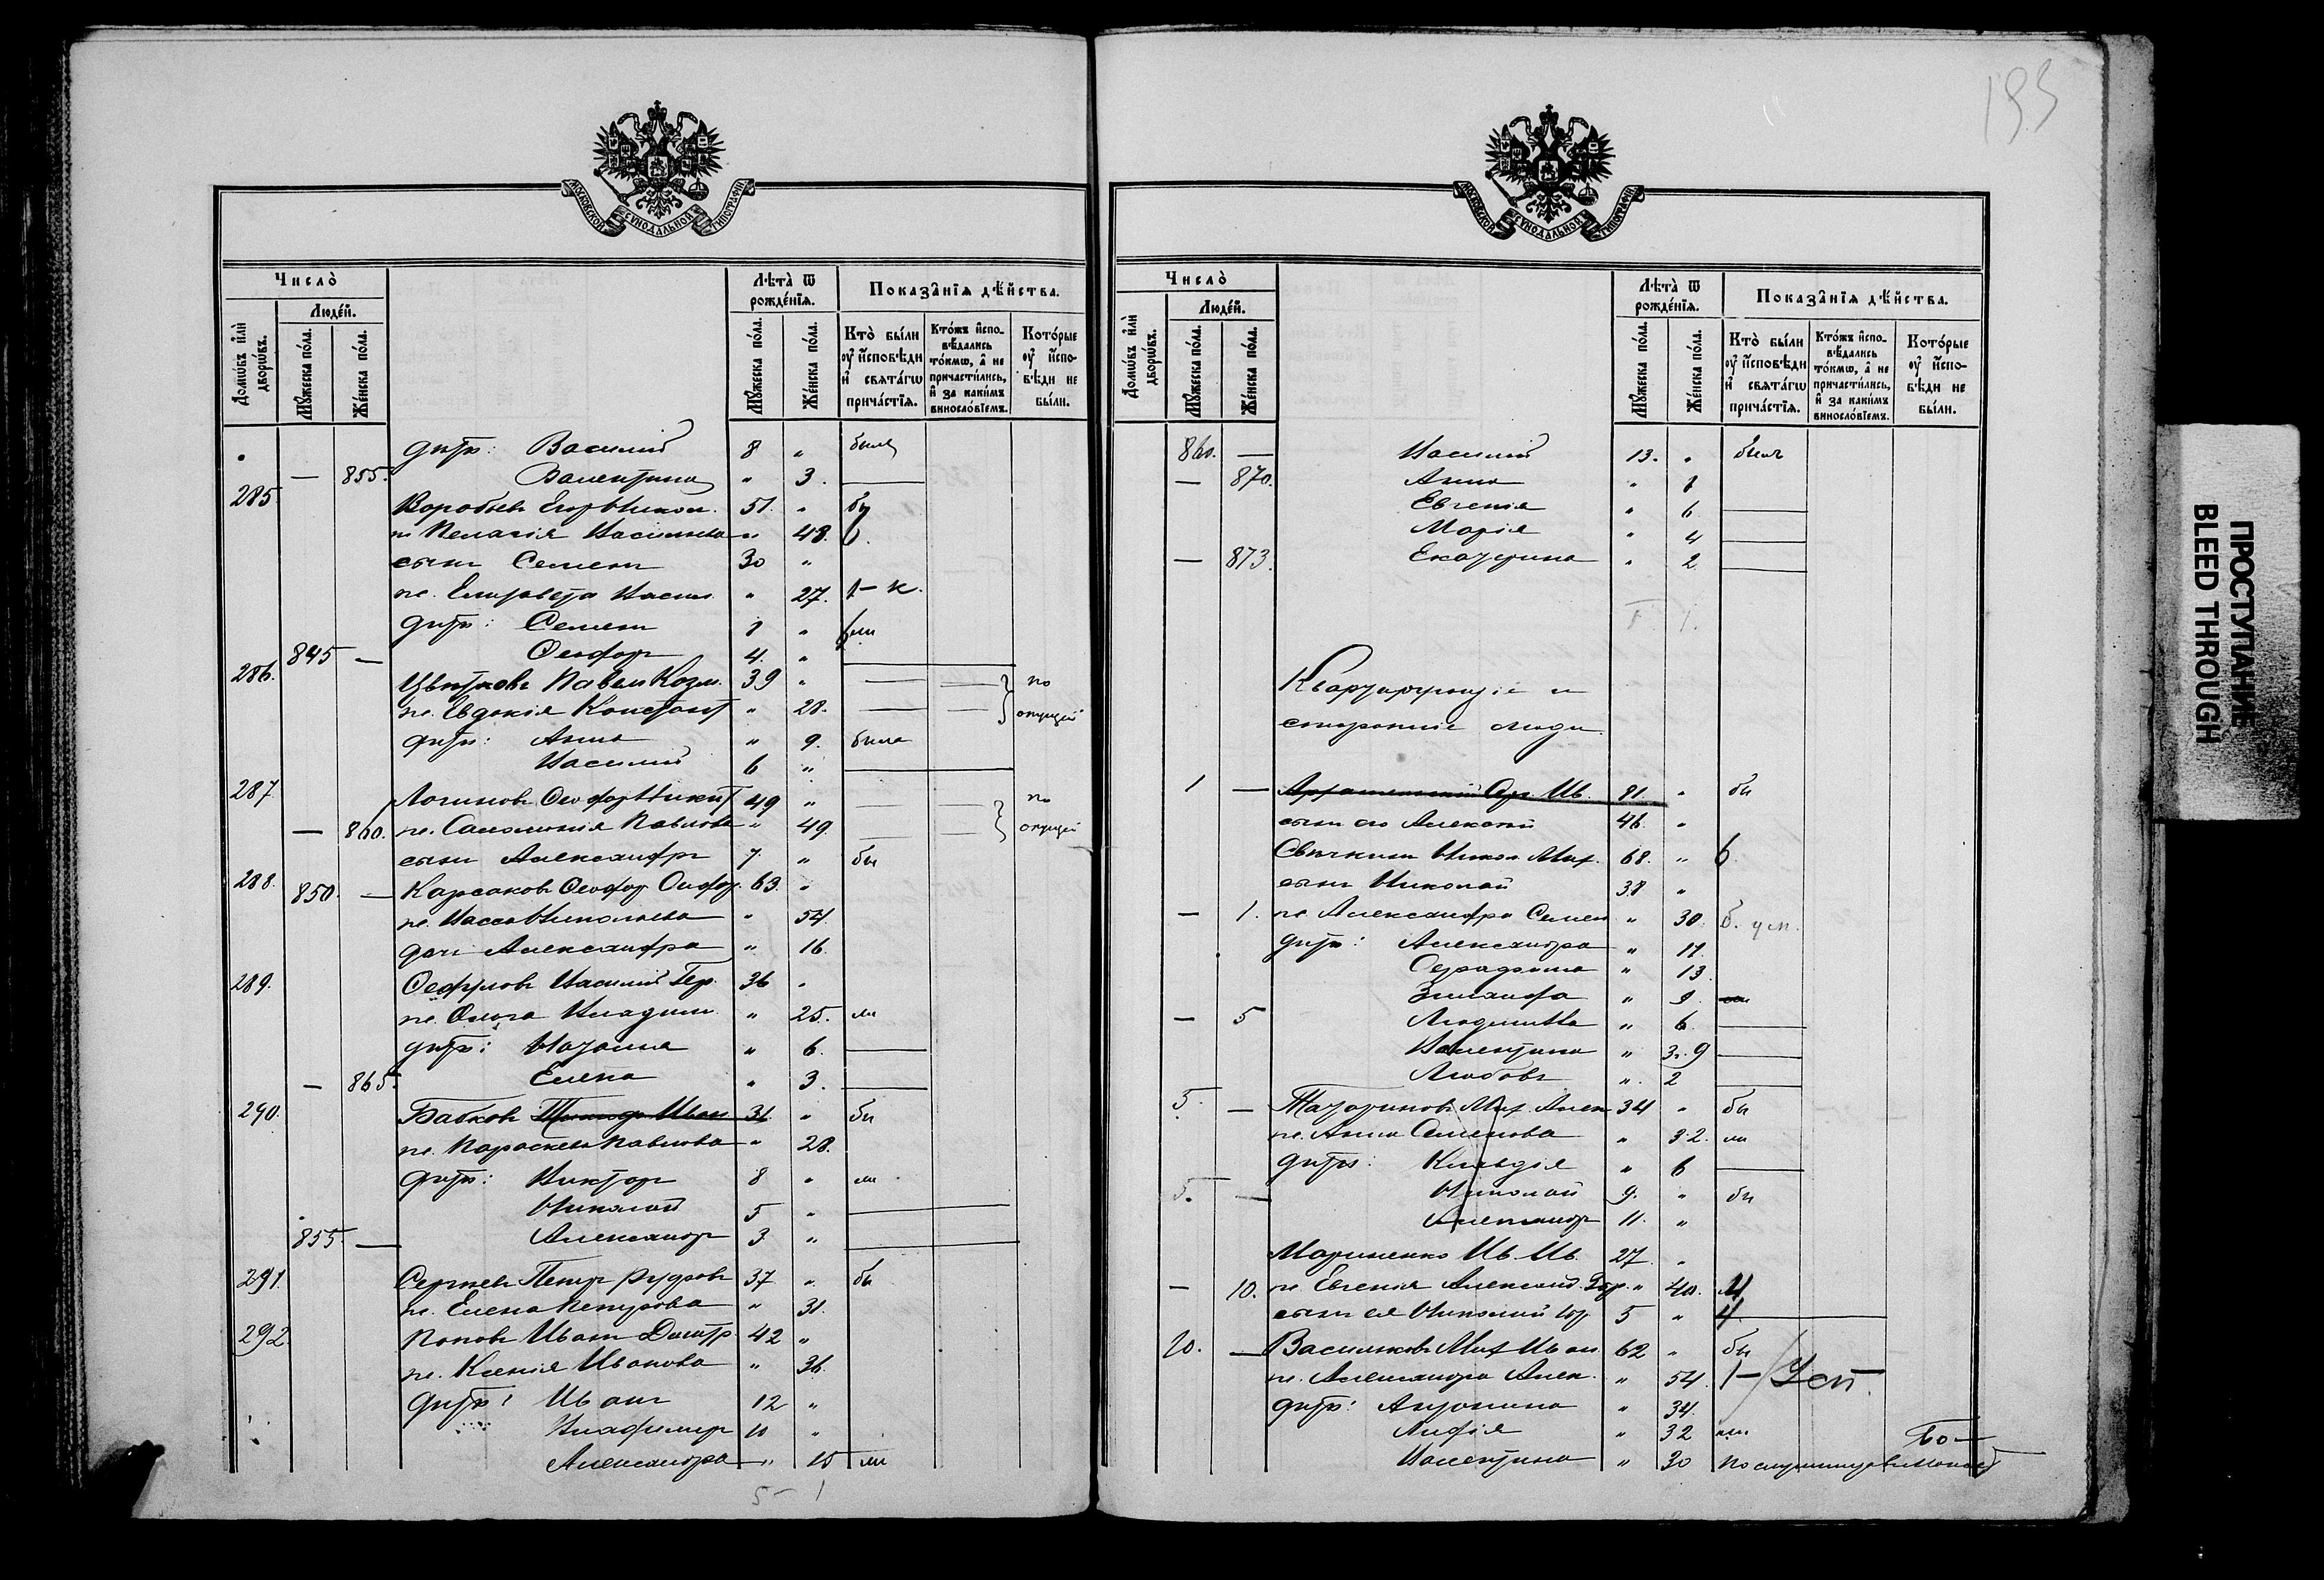 193
МОСКОВСКОЙ СѴНОДАЛЬНОЙ ТИПОГРАФІИ
Число̀
Людéй.
Домѡ́въ и҆лѝ дворѡ́въ.
Мꙋ́жеска по́ла.
Же́нска по́ла.
Лѣ́та ѿ рождéнїѧ.
Мꙋ́жеска по́ла.
Же́нска по́ла.
Показа̑нїѧ дѣ́йства.
Кто̀ бы́ли оу҆ и҆сповѣ́ди и҆ свѧта́гѡ прича́стїѧ.
Кто́жъ и҆сповѣ́дались то́кмѡ, а҆ не причасти́лись, и҆ за каки́мъ винослóвїемъ.
Кото́рые оу҆ и҆сповѣ́ди не бы́ли.
дѣти: Василій 8 " были
— 855. Валентина " 3. —
285 Воробьевъ Егоръ Никол. 51. " бы
ж Пелагія Васильева " 48.
сынъ Семенъ 30 "
ж. Елизавета Васил. " 27. 1 – к.
дѣти: Семенъ "
845 — Ѳеодоръ 4. "
286. Цвѣтковъ Павелъ Козм. 39 " — — по
ж. Евдокія Констант " 28. — — опущен
дѣти: Анна " 9. была
Василій 6 " —
287 Логиновъ Ѳеодоръ Никит 49 " — — по
— 860. ж. Саломонія Павлова " 49. — — опущен
сынъ Александръ 7. " бы
288. 850. — Карсаковъ Ѳеодор 63. "
ж. Васса Николаева " 54
дочь Александра " 16.
289. Василій Гер. 36 "
ж. Ольга Владим. " 25. ли
дѣти: Наталія " 6. —
— 865. Елена " 3. —
290. Бабковъ Иван 31. " бы
ж. Параскева Павлова " 28.
дѣти: Викторъ 8 " ли
Николай 5 " —
855. — Александръ 3 " —
291. Сергѣевъ Петръ 37 " бы
ж. Елена Петрова " 31.
292. Поповъ Иванъ Дмитр 42 "
ж. Ксенія Иванова " 36.
дѣти: Иванъ 12 "
Владиміръ 10 "
Александра " 15 ли
5 – 1
МОСКОВСКОЙ СѴНОДАЛЬНОЙ ТИПОГРАФІИ
Число̀
Людéй.
Домѡ́въ и҆лѝ дворѡ́въ.
Мꙋ́жеска по́ла.
Же́нска по́ла.
Лѣ́та ѿ рождéнїѧ.
Мꙋ́жеска по́ла.
Же́нска по́ла.
Показа̑нїѧ дѣ́йства.
Кто̀ бы́ли оу҆ и҆сповѣ́ди и҆ свѧта́гѡ прича́стїѧ.
Кто́жъ и҆сповѣ́дались то́кмѡ, а҆ не причасти́лись, и҆ за каки́мъ винослóвїемъ.
Кото́рые оу҆ и҆сповѣ́ди не бы́ли.
860. — Василій 13. " былъ
— 870. Анна "
Евгенія " 6 —
Марія " 4 —
— 873. Екатерина " 2 —
Квартирующіе и
сторонніе люди.
1 — Ив. 81. " бы
сынъ его Алексѣй 46. "
Свѣчкинъ Никол Мих. 68. " б.
сынъ Николай 38 "
— 1. ж Александра Семен " 30. б.
дѣти: Александра " 11.
" 13.
Зинаида " 9.
— 5 Людмила " 6. —
Валентина " 3. 9 —
Любовь " 2 —
5. — Мих. Алек 34 " бы
ж. Анна Семенова " 32. ли
дѣти: Клавдія " 6 —
5. — Николай 9. " бы
Александр 11. "
Мариненко Ив. Ив. 27. "
— 10. ж Евгенія Александ. " 40.
сынъ ея Николай 5 " —
10. — Васильковъ Мих Иван 62 " бы
ж. Александра Алек. " 54. 1 –
дѣти: Антонина " 34.
Лидія " 32
Валентина " 30
ПРОСТУПАНИЕ
BLED THROUGH